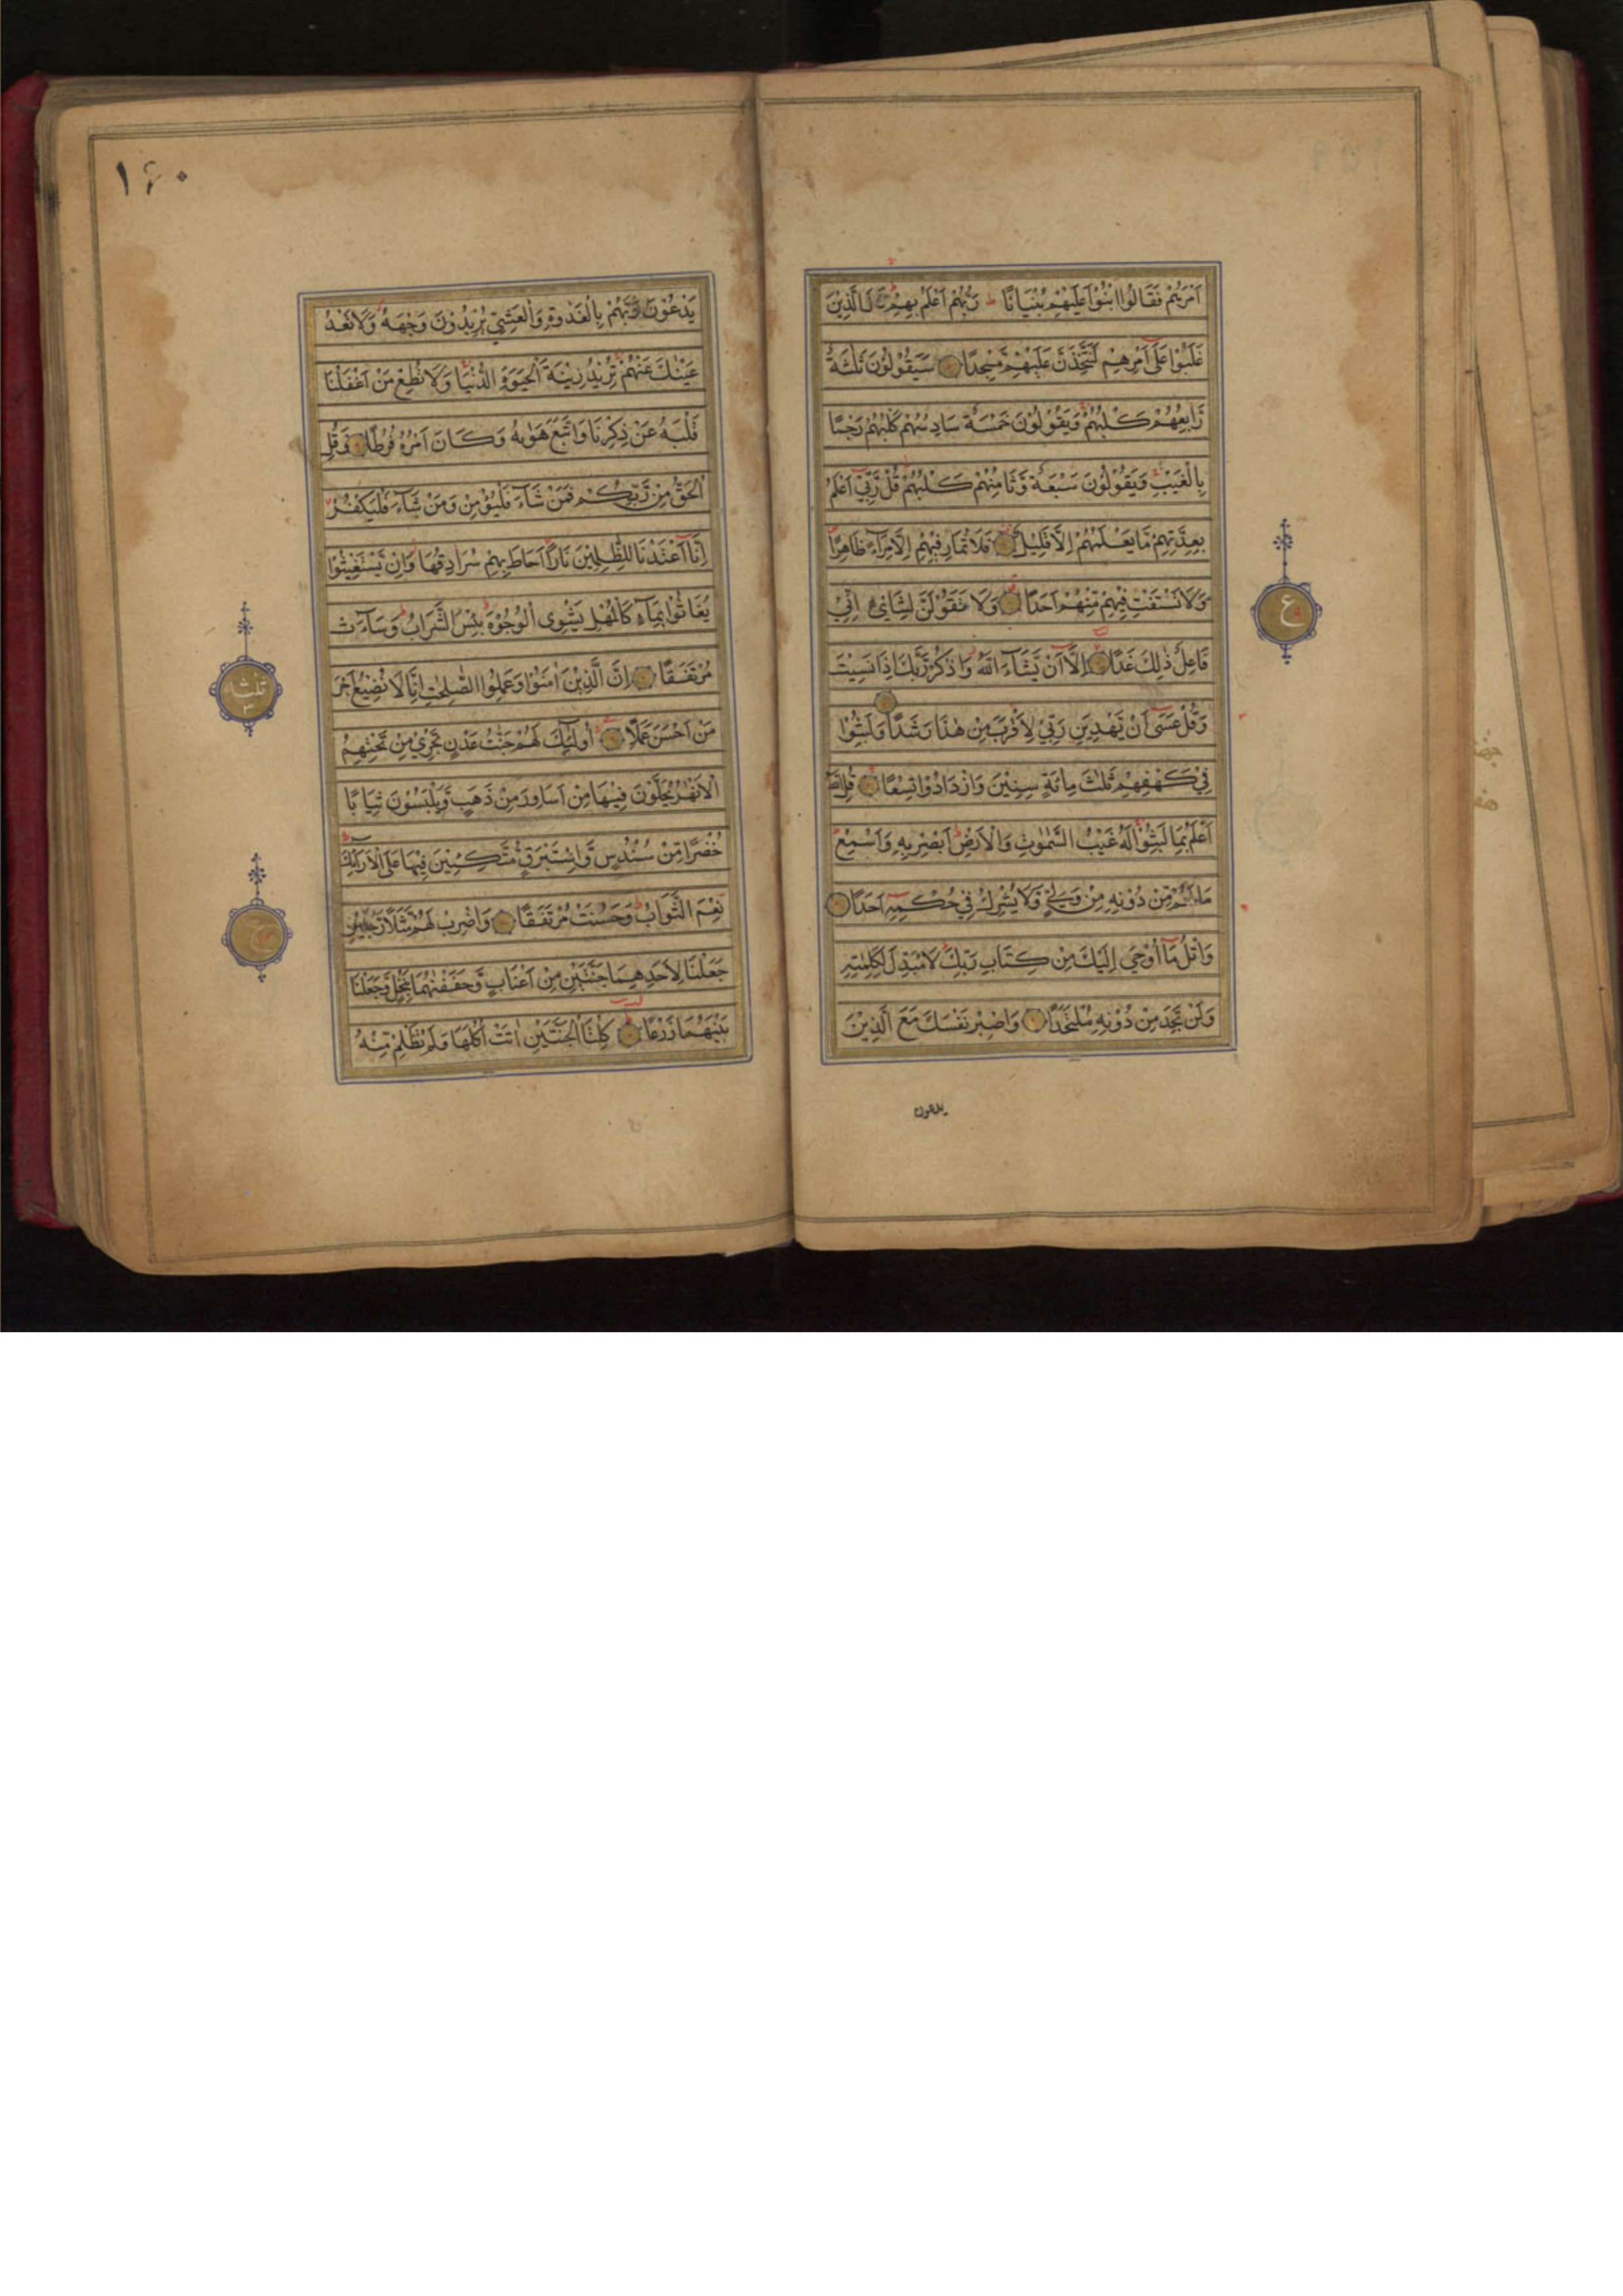 اَمْرَهُمْ فَقَالُوا ابْنُوْا عَلَيْهِمْ بُنْيَانًا ط رَبُّهُمْ اَعْلَمُ بِهِمْ قَالَ الَّذِيْنَ
غَلَبُوْا عَلٰٓى اَمْرِهِمْ لَنَتَّخِذَنَّ عَلَيْهِمْ مَّسْجِدًا سَيَقُوْلُوْنَ ثَلٰثَةٌ
رَّابِعُهُمْ كَلْبُهُمْ وَيَقُوْلُوْنَ خَمْسَةٌ سَادِسُهُمْ كَلْبُهُمْ رَجْمًا
بِالْغَيْبِ وَيَقُوْلُوْنَ سَبْعَةٌ وَّثَامِنُهُمْ كَلْبُهُمْ قُلْ رَّبِّيْٓ اَعْلَمُ
بِعِدَّتِهِمْ مَّا يَعْلَمُهُمْ اِلَّا قَلِيْلٌ فَلَا تُمَارِ فِيْهِمْ اِلَّا مِرَآءً ظَاهِرًا
وَّلَا تَسْتَفْتِ فِيْهِمْ مِّنْهُمْ اَحَدًا وَلَا تَقُوْلَنَّ لِشَايْءٍ اِنِّيْ
فَاعِلٌ ذٰلِكَ غَدًا اِلَّآ اَنْ يَّشَآءَ اللّٰهُ وَاذْكُرْ رَّبَّكَ اِذَا نَسِيْتَ
وَقُلْ عَسٰٓى اَنْ يَّهْدِيَنِ رَبِّيْ لِاَقْرَبَ مِنْ هٰذَا رَشَدًا وَلَبِثُوْا
فِيْ كَهْفِهِمْ ثَلٰثَ مِائَةٍ سِنِيْنَ وَازْدَادُوْا تِسْعًا قُلِ اللّٰهُ
اَعْلَمُ بِمَا لَبِثُوْا لَهٗ غَيْبُ السَّمٰوٰتِ وَالْاَرْضِ اَبْصِرْ بِهٖ وَاَسْمِعْ
مَا لَهُمْ مِّنْ دُوْنِهٖ مِنْ وَّلِيٍّ وَّلَا يُشْرِكُ فِيْ حُكْمِهٖٓ اَحَدًا
وَاتْلُ مَآ اُوْحِيَ اِلَيْكَ مِنْ كِتَابِ رَبِّكَ لَا مُبَدِّلَ لِكَلِمٰتِهٖ
وَلَنْ تَجِدَ مِنْ دُوْنِهٖ مُلْتَحَدًا وَاصْبِرْ نَفْسَكَ مَعَ الَّذِيْنَ
يدعون
ع
۱۶۰
يَدْعُوْنَ رَبَّهُمْ بِالْغَدٰوةِ وَالْعَشِيِّ يُرِيْدُوْنَ وَجْهَهٗ وَلَا تَعْدُ
عَيْنٰكَ عَنْهُمْ تُرِيْدُ زِيْنَةَ الْحَيٰوةِ الدُّنْيَا وَلَا تُطِعْ مَنْ اَغْفَلْنَا
قَلْبَهٗ عَنْ ذِكْرِنَا وَاتَّبَعَ هَوٰىهُ وَكَانَ اَمْرُهٗ فُرُطًا وَقُلِ
الْحَقُّ مِنْ رَّبِّكُمْ فَمَنْ شَآءَ فَلْيُؤْمِنْ وَمَنْ شَآءَ فَلْيَكْفُرْ
اِنَّآ اَعْتَدْنَا لِلظّٰلِمِيْنَ نَارًا اَحَاطَ بِهِمْ سُرَادِقُهَا وَاِنْ يَّسْتَغِيْثُوْا
يُغَاثُوْا بِمَآءٍ كَالْمُهْلِ يَشْوِى الْوُجُوْهَ بِئْسَ الشَّرَابُ وَسَآءَتْ
مُرْتَفَقًا اِنَّ الَّذِيْنَ اٰمَنُوْا وَعَمِلُوا الصّٰلِحٰتِ اِنَّا لَا نُضِيْعُ اَجْرَ
مَنْ اَحْسَنَ عَمَلًا اُولٰٓئِكَ لَهُمْ جَنّٰتُ عَدْنٍ تَجْرِيْ مِنْ تَحْتِهِمُ
الْاَنْهٰرُ يُحَلَّوْنَ فِيْهَا مِنْ اَسَاوِرَ مِنْ ذَهَبٍ وَّيَلْبَسُوْنَ ثِيَابًا
خُضْرًا مِّنْ سُنْدُسٍ وَّاِسْتَبْرَقٍ مُّتَّكِئِيْنَ فِيْهَا عَلَى الْاَرَآئِكِ
نِعْمَ الثَّوَابُ وَحَسُنَتْ مُرْتَفَقًا وَاضْرِبْ لَهُمْ مَّثَلًا رَّجُلَيْنِ
جَعَلْنَا لِاَحَدِهِمَا جَنَّتَيْنِ مِنْ اَعْنَابٍ وَّحَفَفْنٰهُمَا بِنَخْلٍ وَّجَعَلْنَا
بَيْنَهُمَا زَرْعًا كِلْتَا الْجَنَّتَيْنِ اٰتَتْ اُكُلَهَا وَلَمْ تَظْلِمْ مِّنْهُ
ثلثاء